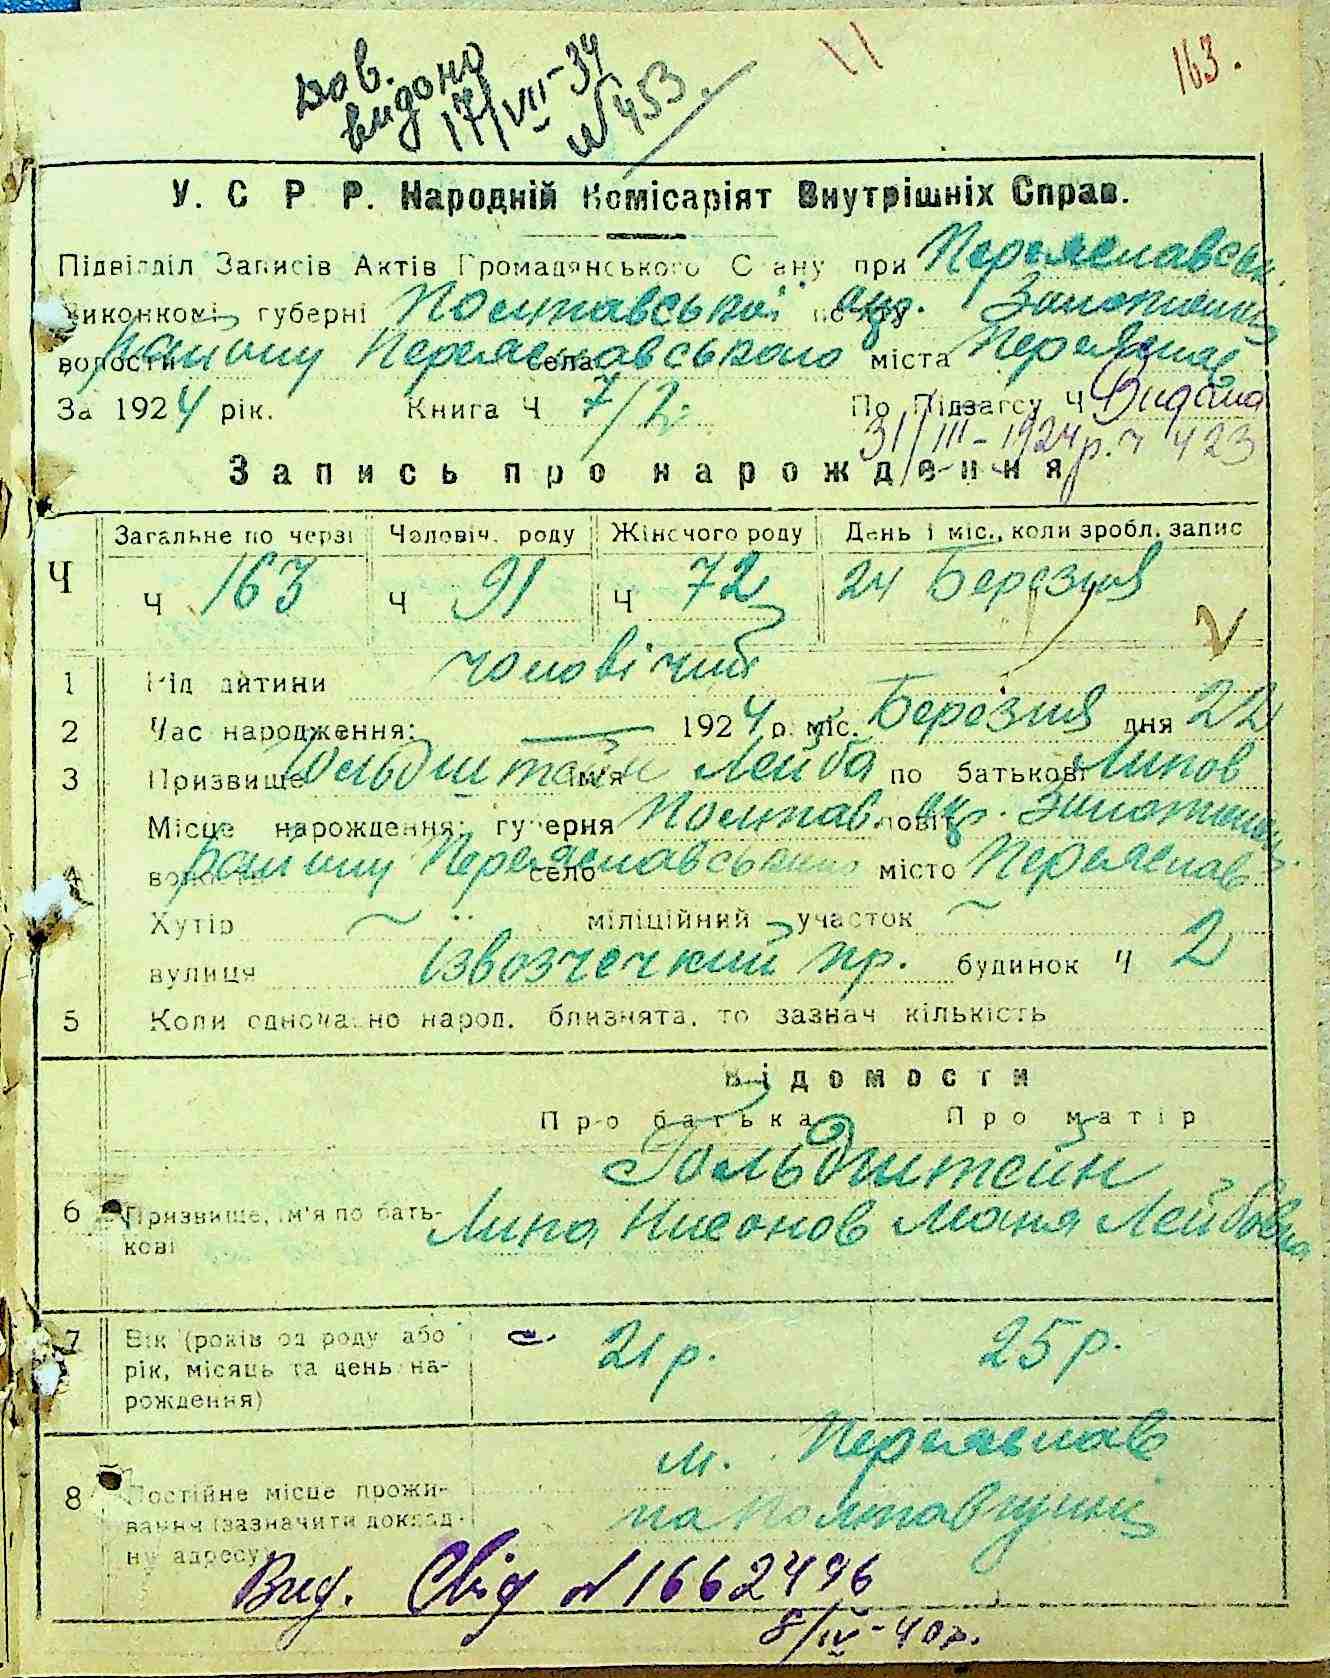 11
163.
Дов.
видано
17/VII-34
№ 453.
У. С. Р. Р. Народній Комісаріят Внутрішніх Справ.
Підвідділ Записів Актів Громадянського Стану при Переяславськ.
Виконкомі губерні Полтавської повіту окр. Золотонош
волости району Переяславського села міста Переяслав
За 1924 рік. Книга Ч 7/2 По Підзагсу Ч Видана
31/III-1924р. ч 423
Запись про народження
Загальне по черзі Чоловіч. роду Жіночого роду День і міс., коли зробл. запис
Ч Ч 163 Ч 91 Ч 72 24 Березня
1 Рід дитини чоловічий
2 Час народження: — 1924 р. міс. Березня дня 22
3 Призвище Гольдштейн ім'я Лейба по батькові Липов
Місце нарождення: губерня Полтав. повіт окр. Золотонош
4 волость району Переяславського село місто Переяслав
Хутір ~ міліційний участок ~
вулиця Ізвозчечкий пр. будинок ч 2
5 Коли одночасно народ. близнята, то зазнач кількість
Відомости
Про батька Про матір
Гольдштейн
6 Призвище, ім'я по бать- Липа Нисонов Маня Лейбовна
кові
7 Вік (років од роду або 21 р. 25 р.
рік, місяць та день на-
рождення)
м. Переяслав
8 Постійне місце прожи- на Полтавщині
вання (зазначити доклад-
ну адресу)
Вид. Свід №1662496
8/IV-40р.